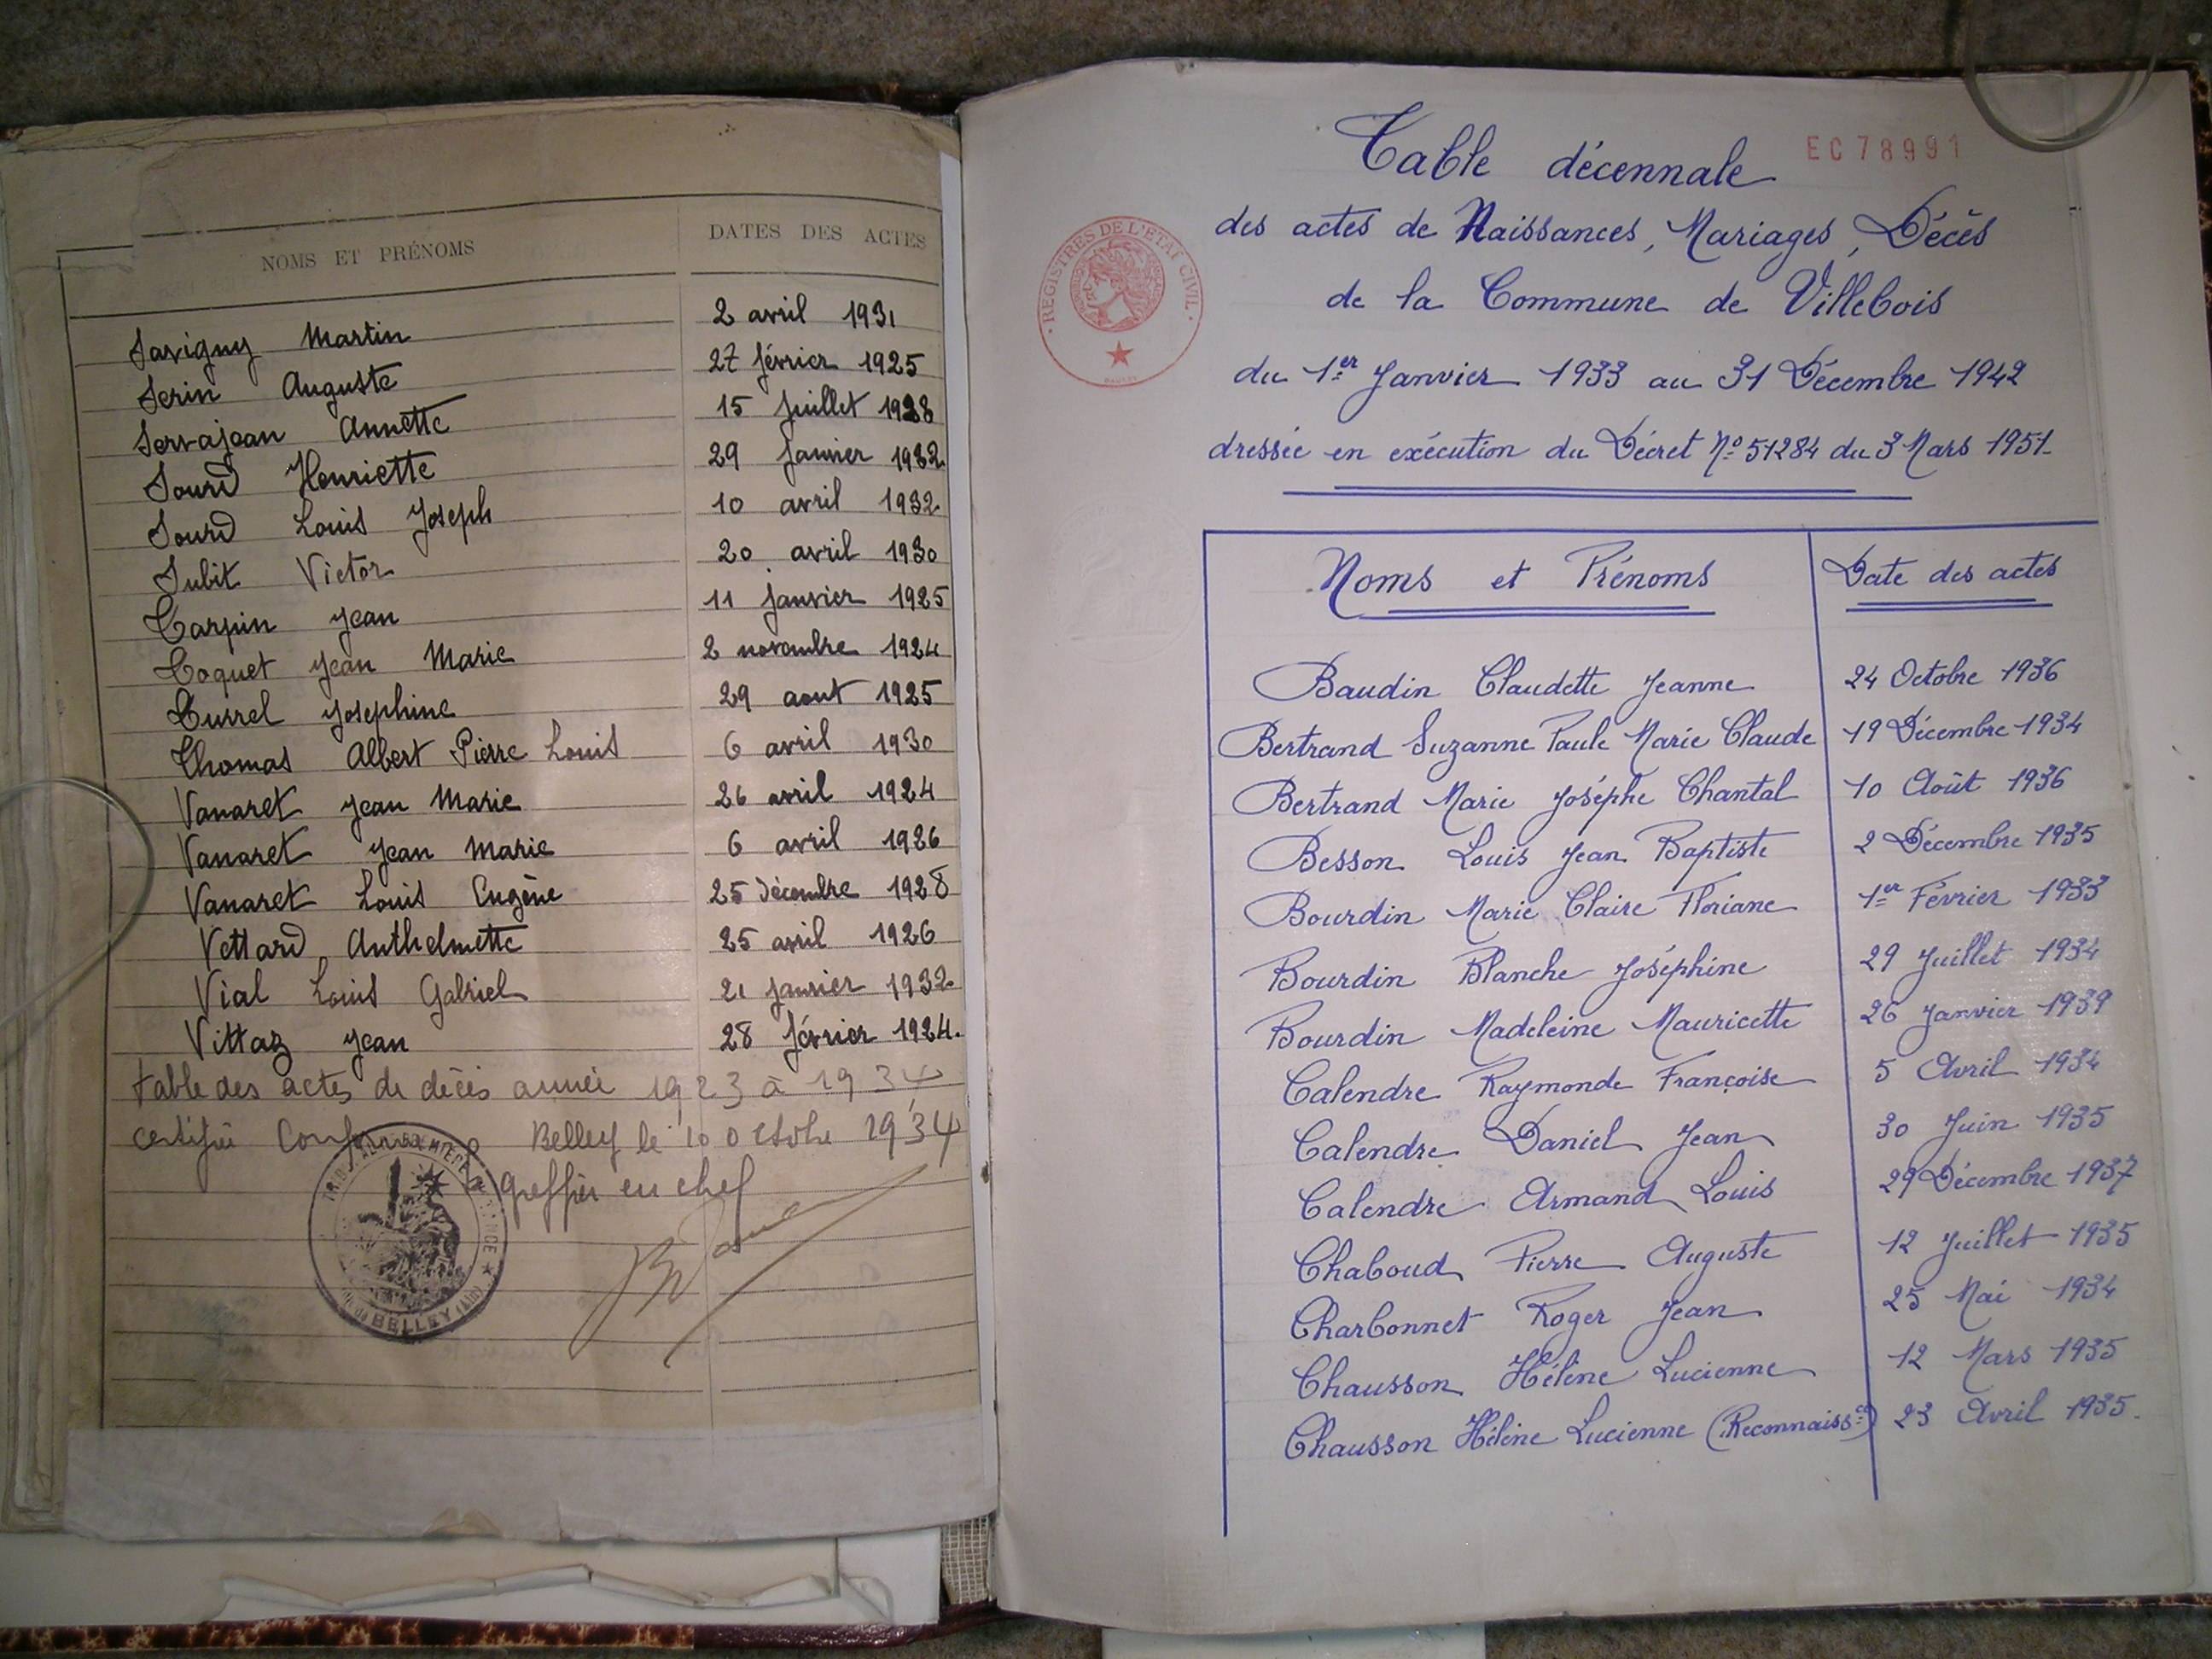 NOMS ET PRÉNOMS DATES DES ACTES
Savigny Martin 2 avril 1931
Serin Auguste 27 février 1925
Servajean Annette 15 juillet 1928
Sourd Henriette 29 janvier 1932
Sourd Louis Joseph 10 avril 1932
Subit Victor 20 avril 1930
Tarpin Jean 11 janvier 1925
Toquet Jean Marie 2 novembre 1924
Turrel Joséphine 29 aout 1925
Thomas Albert Pierre Louis 6 avril 1930
Vanaret Jean Marie 26 avril 1924
Vanaret Jean Marie 6 avril 1926
Vanaret Louis Eugène 25 décembre 1928
Vettard Anthelmette 25 avril 1926
Vial Louis Gabriel 21 janvier 1932
Vittaz Jean 28 février 1924.
table des actes de décès année 1923 à 1934
certifié Conforme Belley le 10 octobre 1934
greffier en chef
BELLEY (Ain)
EC 78991
Table décennale
des actes de Naissances, Mariages, Décès
de la Commune de Villebois
du 1er Janvier 1933 au 31 Décembre 1942
dressée en exécution du Décret No 51284 du 3 Mars 1951.
REGISTRES DE L'ETAT CIVIL
Noms et Prénoms Date des actes
Baudin Claudette Jeanne 24 Octobre 1936
Bertrand Suzanne Paule Marie Claude 19 Décembre 1934
Bertrand Marie Josèphe Chantal 10 Août 1936
Besson Louis Jean Baptiste 2 Décembre 1935
Bourdin Marie Claire Floriane 1er Février 1933
Bourdin Blanche Joséphine 29 Juillet 1934
Bourdin Madeleine Mauricette 26 Janvier 1939
Calendre Raymonde Françoise 5 Avril 1934
Calendre Daniel Jean 30 Juin 1935
Calendre Armand Louis 29 Décembre 1937
Chaboud Pierre Auguste 12 Juillet 1935
Charbonnet Roger Jean 25 Mai 1934
Chausson Hélène Lucienne 12 Mars 1935
Chausson Hélène Lucienne (Reconnaissce) 23 Avril 1935.